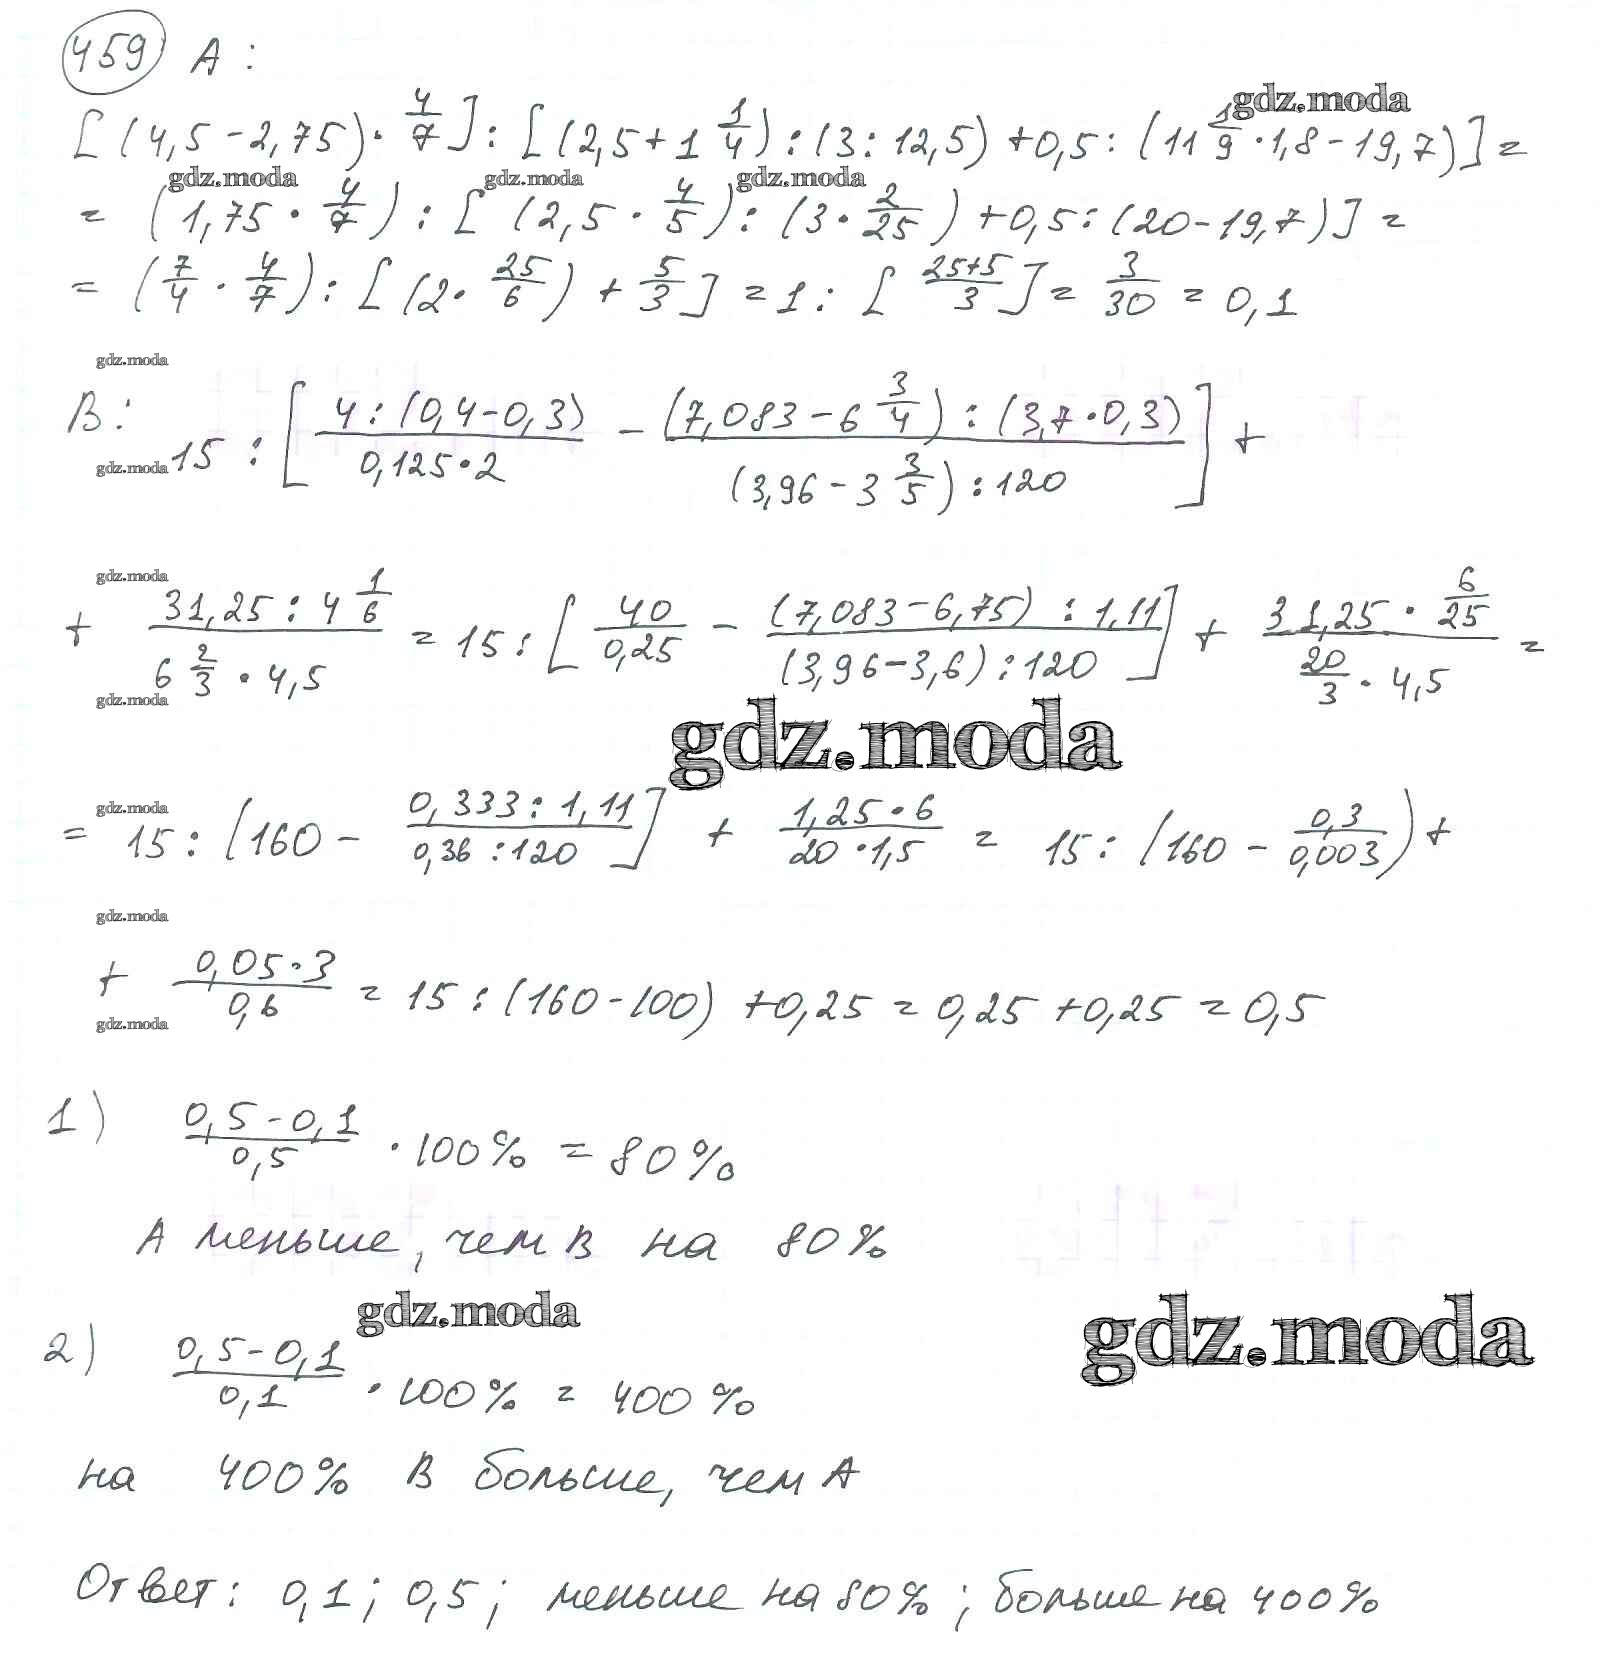 459 A:
gdz.moda
[(4,5-2,75)·4/7]:[(2,5+1 1/4):(3:12,5)+0,5:(11 1/9·1,8-19,7)]=
gdz.moda gdz.moda gdz.moda
=(1,75·4/7):[(2,5·4/5):(3·2/25)+0,5:(20-19,7)]=
=(7/4·4/7):[(2·25/6)+5/3]=1:[(25+5)/3]=3/30=0,1
gdz.moda
B: 15:[(4:(0,4-0,3))/(0,125·2)-((7,083-6 3/4):(3,7·0,3))/((3,96-3 3/5):120)]+
gdz.moda
gdz.moda
+(31,25:4 1/6)/(6 2/3·4,5)=15:[40/0,25-((7,083-6,75):1,11)/((3,96-3,6):120)]+(31,25·6/25)/(20/3·4,5)=
gdz.moda
gdz.moda
gdz.moda
=15:[160-(0,333:1,11)/(0,36:120)]+(1,25·6)/(20·1,5)=15:(160-0,3/0,003)+
gdz.moda
+(0,05·3)/0,6=15:(160-100)+0,25=0,25+0,25=0,5
gdz.moda
1) (0,5-0,1)/0,5·100%=80%
А меньше, чем В на 80%
gdz.moda
gdz.moda
2) (0,5-0,1)/0,1·100%=400%
на 400% В больше, чем А
Ответ: 0,1; 0,5; меньше на 80%; больше на 400%